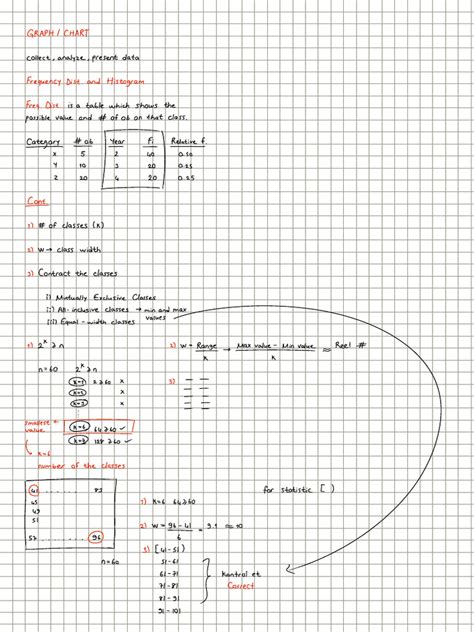 GRAPH / CHART
collect, analyze, present data
Frequency Dist. and Histogram
Freq. Dist. is a table which shows the
possible value and # of ob on that class.
Category # ob Year Fi Relative f.
x 5 2 40 0.50
y 10 3 20 0.25
z 20 4 20 0.25
Cont.
1) # of classes (k)
2) w → class width
3) Contract the classes
i) Mutually Exclusive Classes
ii) All-inclusive classes → min and max values
iii) Equal-width classes
1) 2^k ≥ n
n=60 2^k ≥ n
k=1 2≥60 x
k=2 x
k=3 x
smallest value
k=6 64≥60 ✓
128≥60 ✓
k=6
number of the classes
2) w = Range / k → Max value - Min value / k = Reel #
3)
41 ...... 83
45
49
51
57 ...... 96
n=60
for statistic [ )
1) k=6 64≥60
2) w = 96-41 / 6 = 9.1 ≈ 10
3) [41-51)
51-61
61-71
71-81
81-91
91-101
Kontrol et
Correct